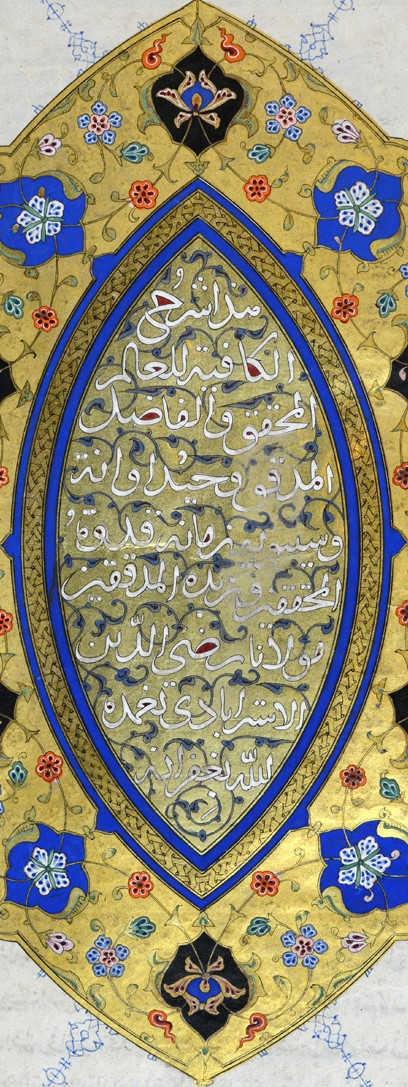 هذا شرح
الكافية للعالم
المحقق والفاضل
المدقق وحيد اوانه
وسيبويه زمانه قدوة
المحققين وزبدة المدققين
مولانا رضي الدين
الاسترابادي تغمده
الله بغفرانه